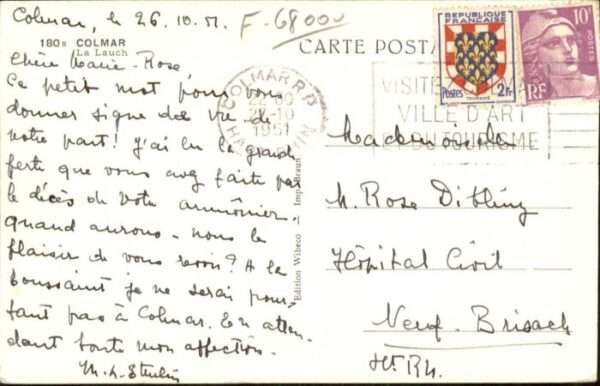 Colmar, le 26.10.51.
F-68000
180B COLMAR
La Lauch
CARTE POSTA
Chère Marie-Rose,
Ce petit mot pour vous
donner signe de vie de
votre part! j'ai lu la grande
perte que vous avez faite par
le décès de votre aumônier.
Quand aurons-nous le
plaisir de vous revoir? A la
Toussaint je ne serai pour-
tant pas à Colmar. En atten-
dant toute mon affection.
Edition Wibeco Imp. Braun
COLMAR R.P.
22 00
-10
1951
HAUT-RHIN
VISITEZ
VILLE D'ART
ET DU TOURISME
REPUBLIQUE
FRANÇAISE
Postes 2Fr
TOURAINE
10F
POSTES
RF
Mademoiselle
M. Rose
Hôpital Civil
Neuf-Brisach
Ht Rh.